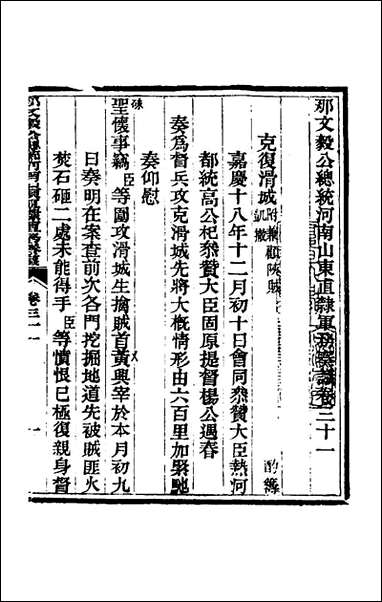 那文毅公總統河南山東直隸軍務奏議卷三十一
克復滑城附兼顧陝賊凱撤
嘉慶十八年十二月初十日會同叅贊大臣熱河
都統高公杞叅贊大臣固原提督楊公遇春
奏爲督兵攻克滑城先將大概情形由六百里加緊馳
奏仰慰
硃
聖懷事竊臣等圍攻滑城生擒賊首黃興宰於本月初九
日奏明在案查前次各門挖掘地道先被賊匪火
焚石砸二處未能得手臣等憤恨已極復親身督
卷三十一
一